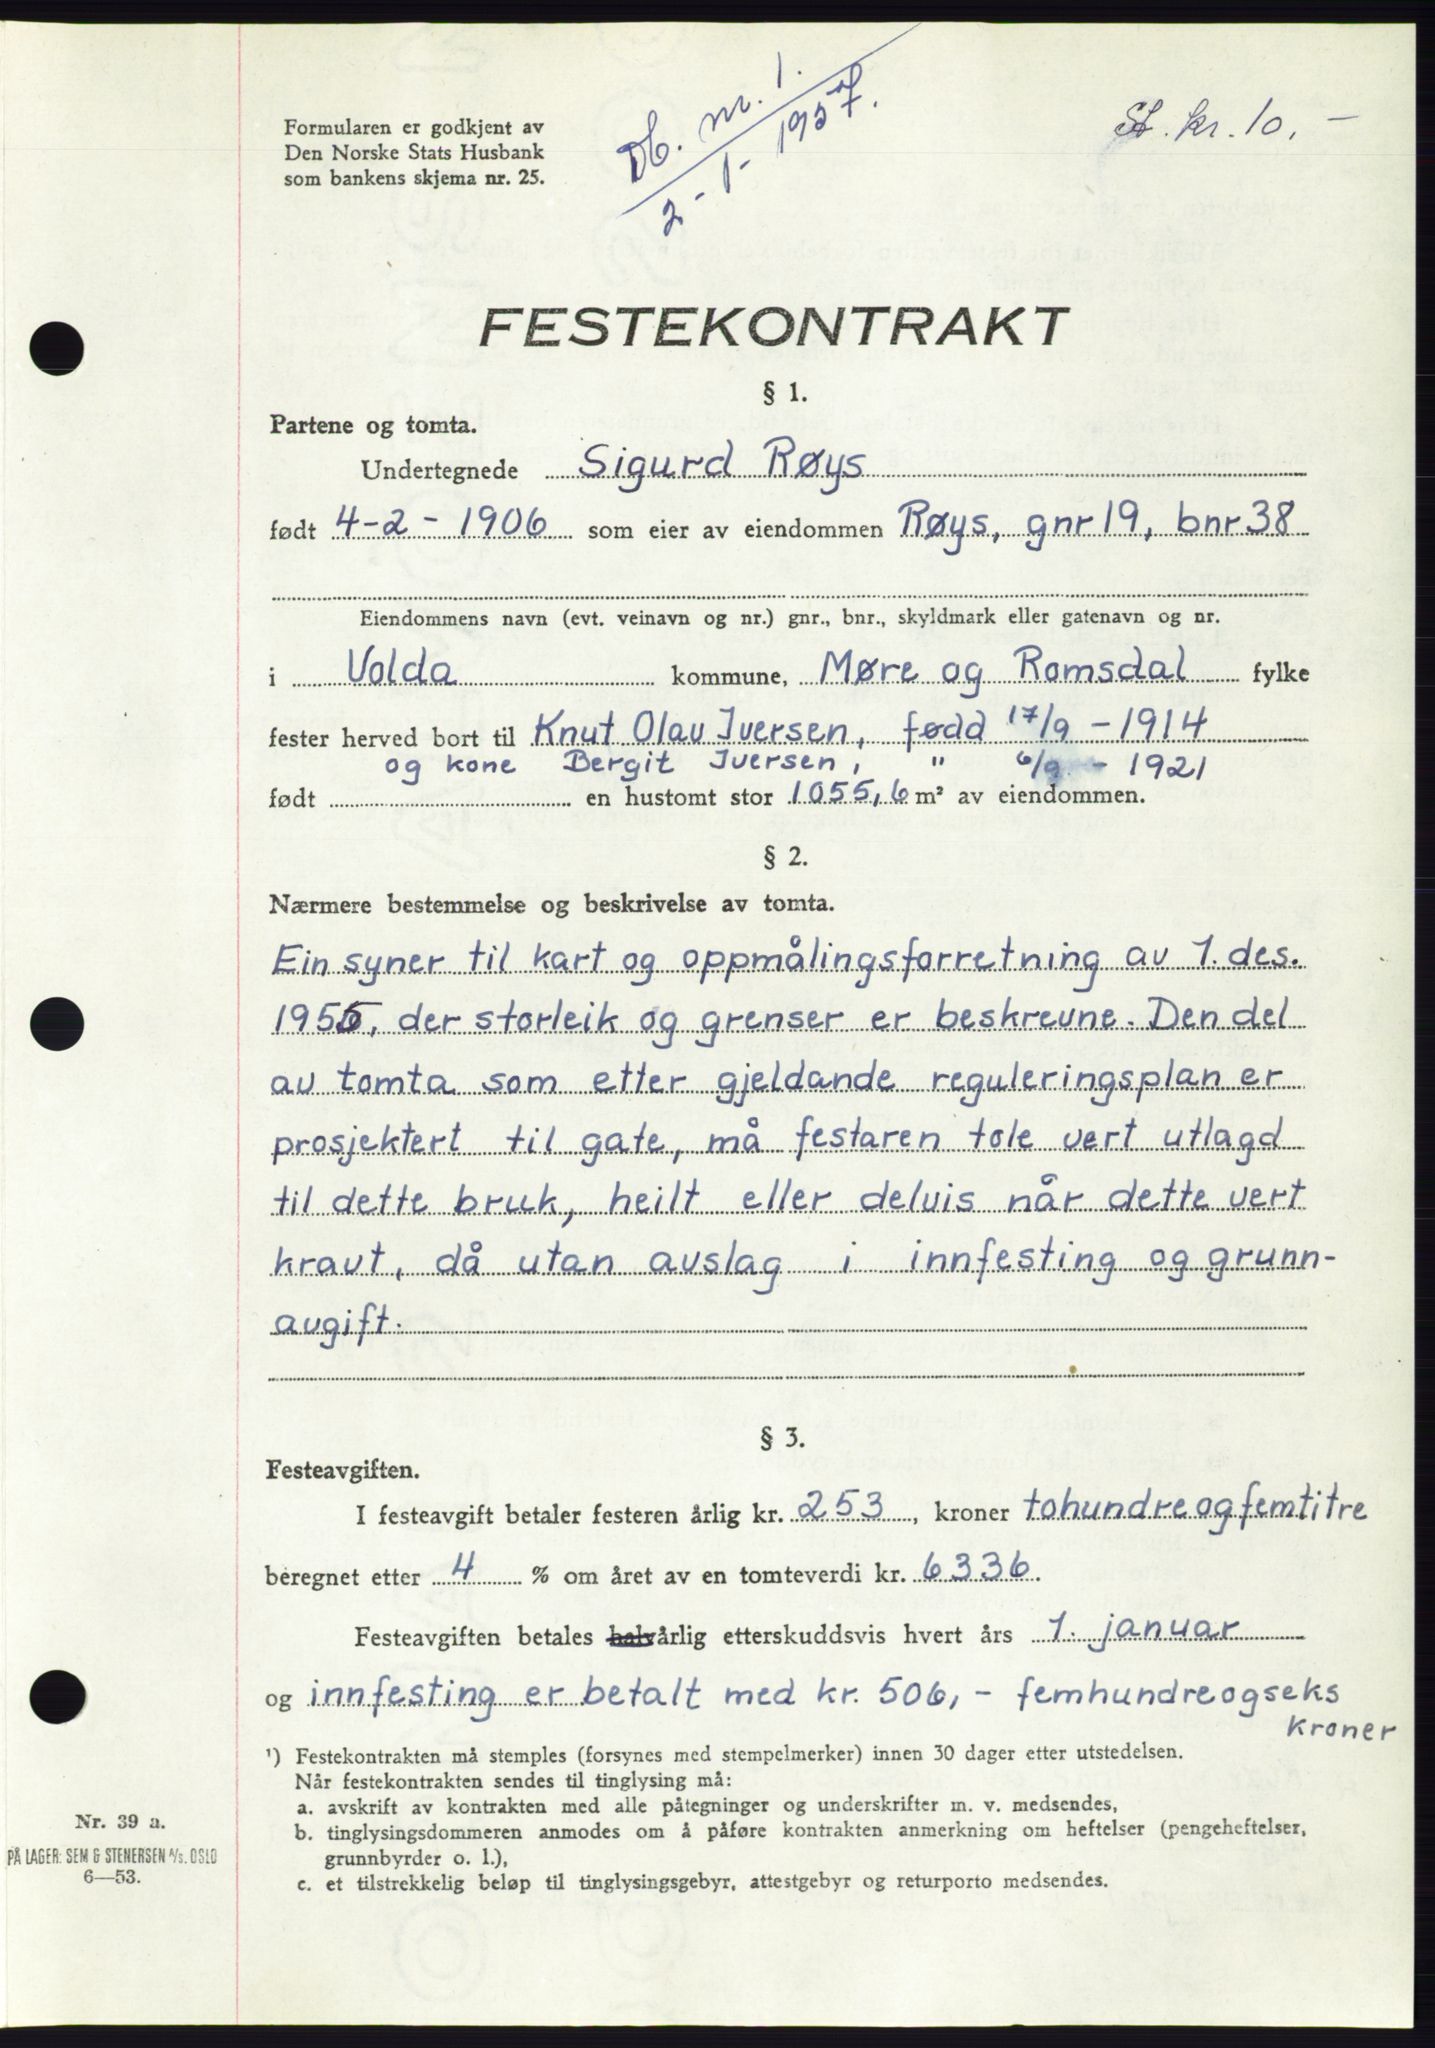 Db. nr. 1.
2-1-1957.
St. kr. 10,-
Formularen er godkjent av
Den Norske Stats Husbank
som bankens skjema nr. 25.
FESTEKONTRAKT
§ 1.
Partene og tomta.
Undertegnede Sigurd Røys
født 4-2-1906 som eier av eiendommen Røys, gnr 19, bnr 38
Eiendommens navn (evt. veinavn og nr.) gnr., bnr., skyldmark eller gatenavn og nr.
i Volda kommune, Møre og Romsdal fylke
fester herved bort til Knut Olav Iversen, fødd 17/9-1914
og kone Bergit Iversen, " 6/9 - 1921
født en hustomt stor 1055,6 m² av eiendommen.
§ 2.
Nærmere bestemmelse og beskrivelse av tomta.
Ein syner til kart og oppmålingsforretning av 1. des.
1956, der storleik og grenser er beskrevne. Den del
av tomta som etter gjeldande reguleringsplan er
prosjektert til gate, må festaren tole vert utlagd
til dette bruk, heilt eller delvis når dette vert
kravt, då utan avslag i innfesting og grunn-
avgift.
§ 3.
Festeavgiften.
I festeavgift betaler festeren årlig kr. 253, kroner tohundreogfemtitre
beregnet etter 4 % om året av en tomteverdi kr. 6336.
Festeavgiften betales halvårlig etterskuddsvis hvert års 1. januar
og innfesting er betalt med kr. 506,- femhundreogseks
kroner
¹) Festekontrakten må stemples (forsynes med stempelmerker) innen 30 dager etter utstedelsen.
Når festekontrakten sendes til tinglysing må:
a. avskrift av kontrakten med alle påtegninger og underskrifter m. v. medsendes,
b. tinglysingsdommeren anmodes om å påføre kontrakten anmerkning om heftelser (pengeheftelser,
grunnbyrder o. l.),
c. et tilstrekkelig beløp til tinglysingsgebyr, attestgebyr og returporto medsendes.
Nr. 39 a.
PÅ LAGER: SEM & STENERSEN A/S. OSLO
6—53.